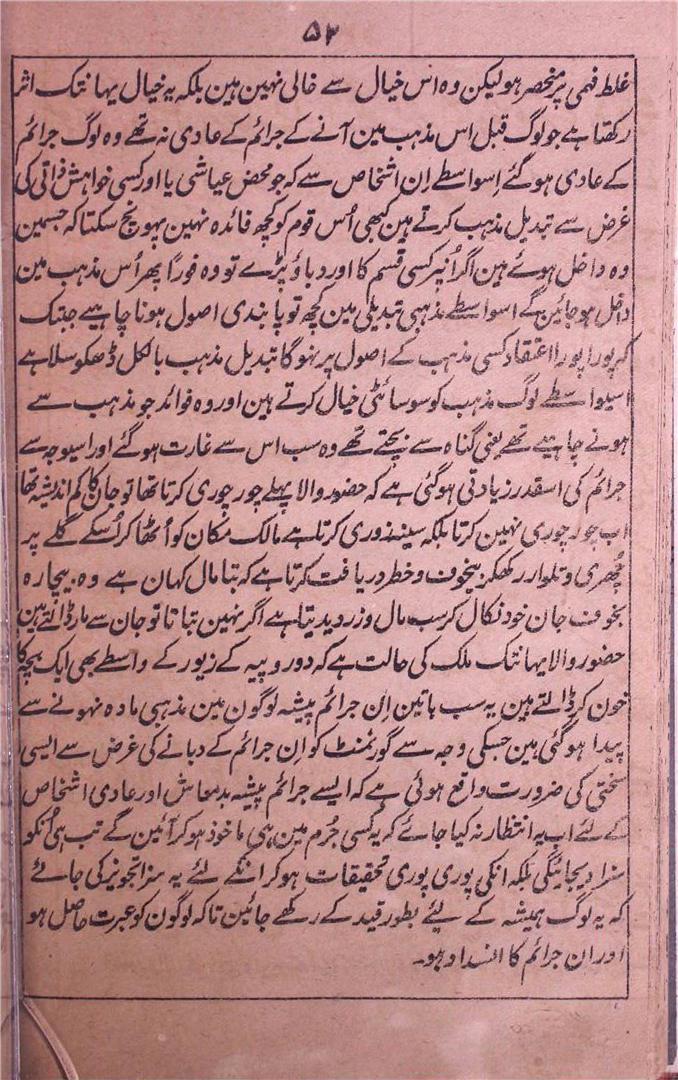 ۵۳
غلط فہمی پر منحصر ہو لیکن وہ اس خیال سے خالی نہین ہین بلکہ یہ خیال یہانتک اثر
رکھتا ہے جو لوگ قبل اس مذہب مین آنے کے جرائم کے عادی نہ تھے وہ لوگ جرائم
کے عادی ہو گئے اِسواسطے اِن اشخاص سے کہ جو محض عیاشی یا اور کسی خواہش ذاتی کی
غرض سے تبدیل مذہب کرتے ہین کبھی اُس قوم کو کچھ فائدہ نہین پہونچ سکتا کہ جسمین
وہ داخل ہوئے ہین اگر اُنپر کسی قسم کا اور دباؤ پڑے تو وہ فوراً پھر اُس مذہب مین
داخل ہو جائین گے اسواسطے مذہبی تبدیلی مین کچھ تو پابندی اصول ہونا چاہیے جبتک
کہ پورا پورا اعتقاد کسی مذہب کے اصول پر نہو گا تبدیل مذہب بالکل ڈھکوسلا ہے
اسیواسطے لوگ مذہب کو سوسائٹی خیال کرتے ہین اور وہ فوائد جو مذہب سے
ہونے چاہیے تھے یعنی گناہ سے بچتے تھے وہ سب اس سے غارت ہو گئے اور اسیوجہ سے
جرائم کی اسقدر زیادتی ہو گئی ہے کہ حضور والا پہلے چور چوری کرتا تھا تو جان کا کم اندیشہ تھا
اب چور چوری نہین کرتا بلکہ سینہ زوری کرتا ہے مالک مکان کو اُٹھا کر اُسکے گلے پر
چُھری و تلوار رکھکر بیخوف و خطر دریافت کرتا ہے کہ بتا مال کہان ہے وہ بیچارہ
بخوف جان خود نکال کر سب مال و زر دیدیتا ہے اگر نہین بتاتا تو جان سے مار ڈالتے ہین
حضور والا یہانتک ملک کی حالت ہے کہ دو روپیہ کے زیور کے واسطے بھی ایک بچہ کا
خون کر ڈالتے ہین یہ سب باتین اِن جرائم پیشہ لوگون مین مذہبی مادہ نہونے سے
پیدا ہو گئی ہین جسکی وجہ سے گورنمنٹ کو اِن جرائم کے دبانے کی غرض سے ایسی
سختی کی ضرورت واقع ہوئی ہے کہ ایسے جرائم پیشہ بدمعاش اور عادی اشخاص
کے لئے اب یہ انتظار نہ کیا جائے کہ یہ کسی جُرم مین ہی ماخوذ ہو کر آئین گے تب ہی اُنکو
سزا دیجائیگی بلکہ انکی پوری پوری تحقیقات ہو کر انکے لئے یہ سزا تجویز کی جائے
کہ یہ لوگ ہمیشہ کے لیئے بطور قید کے رکھے جائین تاکہ لوگون کو عبرت حاصل ہو
اور ان جرائم کا انسداد ہو۔